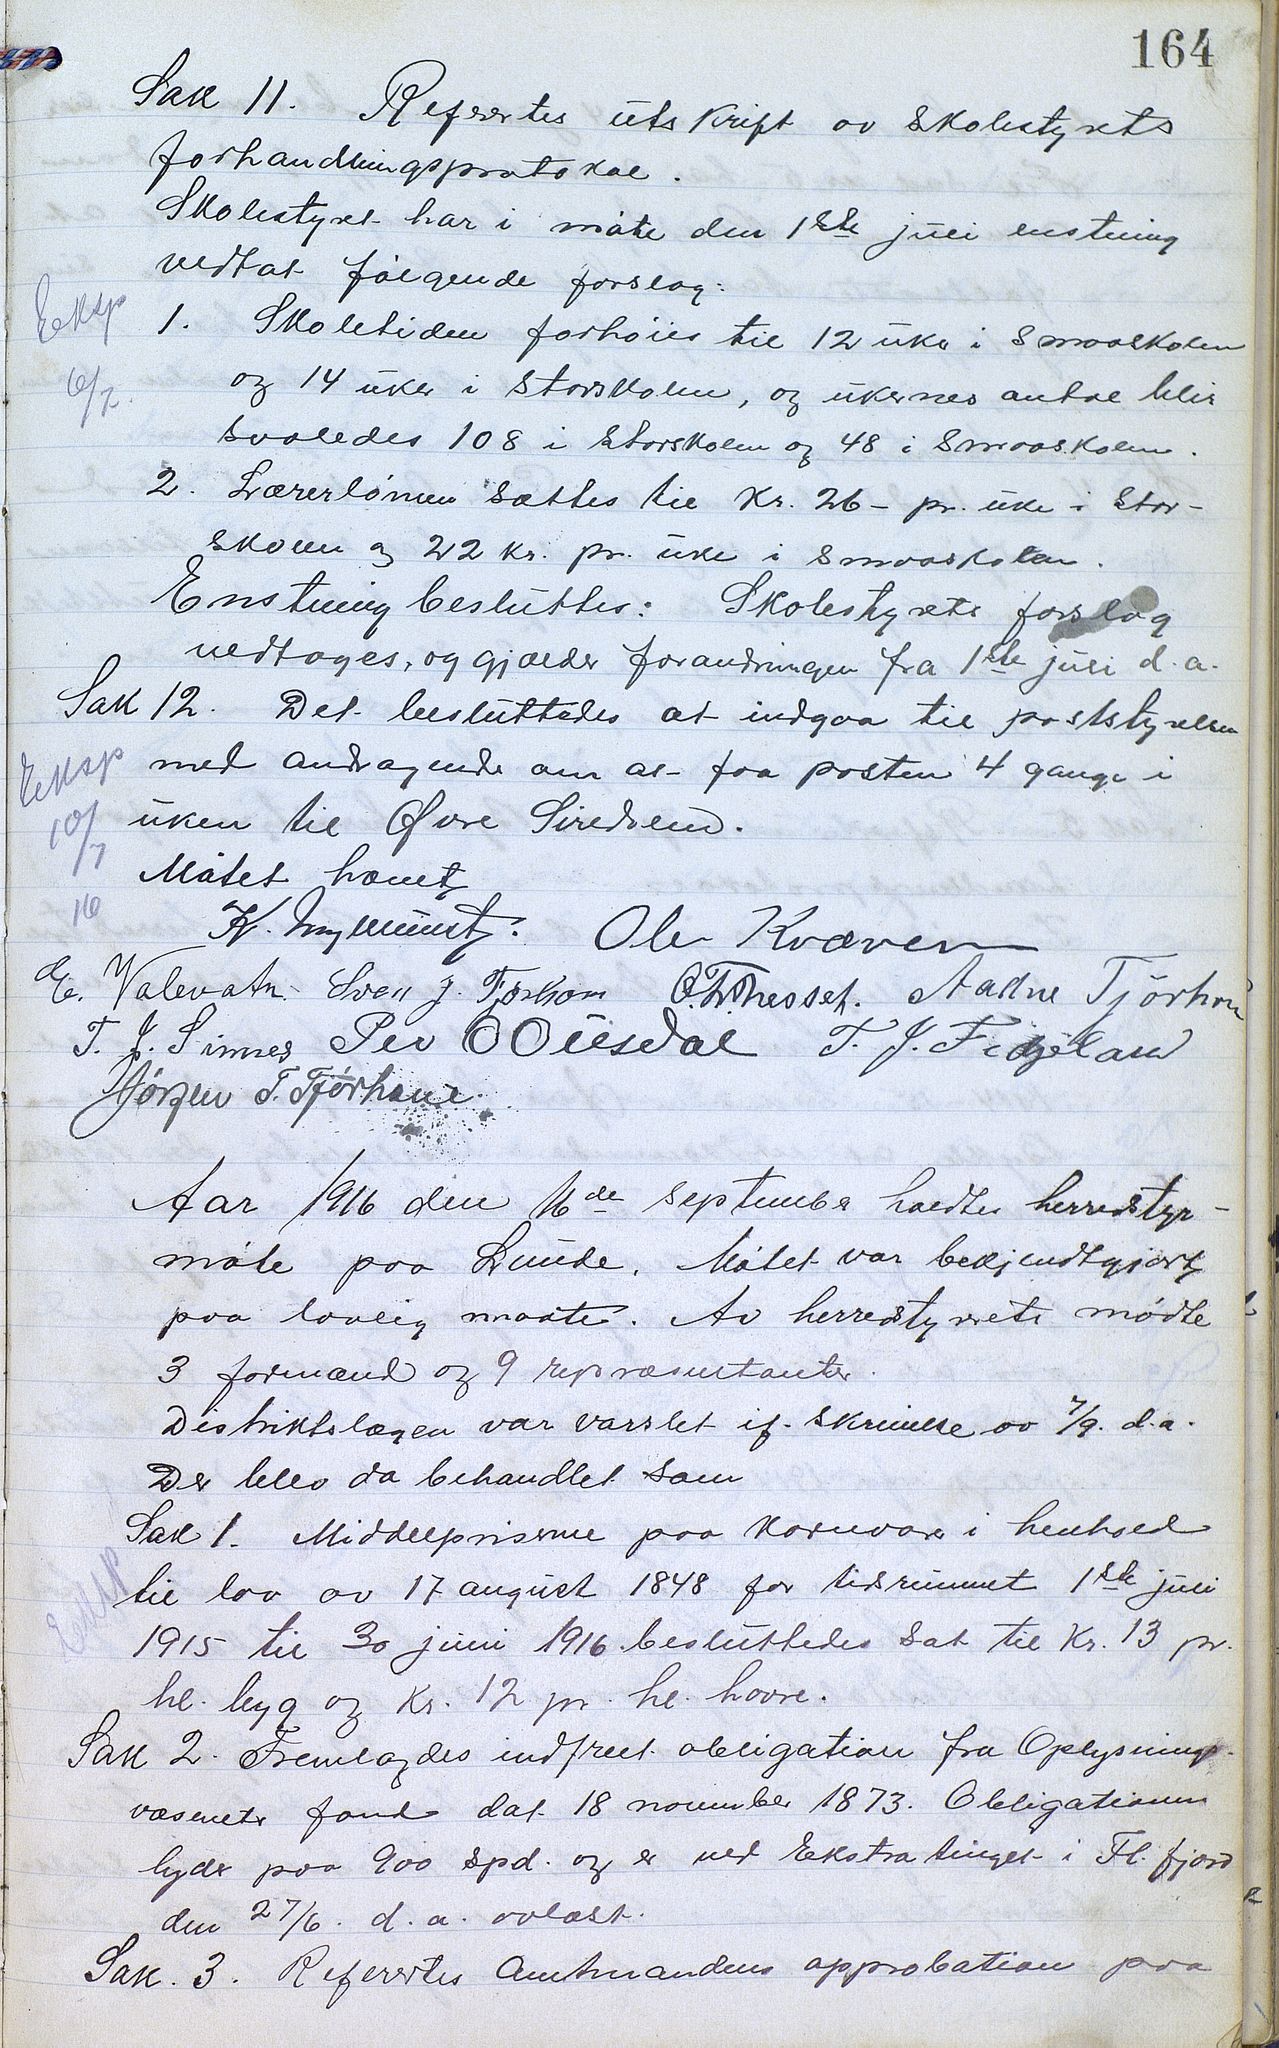 164
Sak 11. Refertes utskrift av skolestyrets
forhandlingsprotokol.
Skolestyret har i møte den 1ste juli enstemmig
vedtat følgende forslag:
Eksp 6/7.
1. Skoletiden forhøies til 12 uker i smaaskolen
og 14 uker i storskolen, og ukernes antal blir
saaledes 108 i storskolen og 48 i smaaskolen.
2. Lærerlønnen sættes til kr. 26 - pr. uke i stor-
skolen og 22 kr. pr. uke i smaaskolen.
Enstemmig besluttes: Skolestyrets forslag
vedtages, og gjælder forandringen fra 1ste juli d. a.
Sak 12. Det besluttedes at indgaa til poststyrelsen
Eksp 10/7 16
med andragende om at faa posten 4 gange i
uken til Øvre Siredalen.
Møtet hævet
Ole Kvæven
E. Valevatn. Sven J. Tjørhom Aadne Tjörhom
T. J. Sinnes Per O Ousdal T. J. Fidjeland
Jörgen T. Tjørhom
Aar 1916 den 16de september holdtes herredstyr-
møte paa Lunde. Møtet var bekjendtgjort
paa lovlig maate. Av herredstyrets mødte
3 formænd og 9 repræsentanter.
Distriktslægen var varslet if. skrivelse av 7/9. d. a.
Der blev da behandlet som
Eksp
Sak 1. Middelpriserne paa kornvarer i henhold
til lov av 17 august 1848 for tidsrummet 1ste juli
1915 til 30 juni 1916 besluttedes sat til kr. 13 pr.
hl. byg og kr. 12 pr. hl. havre.
Sak 2. Fremlagdes indfriet obligation fra Oplysnings-
væsenets fond dat. 18 november 1873. Obligationen
lyder paa 900 spd. og er ved Ekstratinget i Fl. fjord
den 27/6. d. a. avlæst.
Sak. 3. Refertes Amtmandens approbation paa